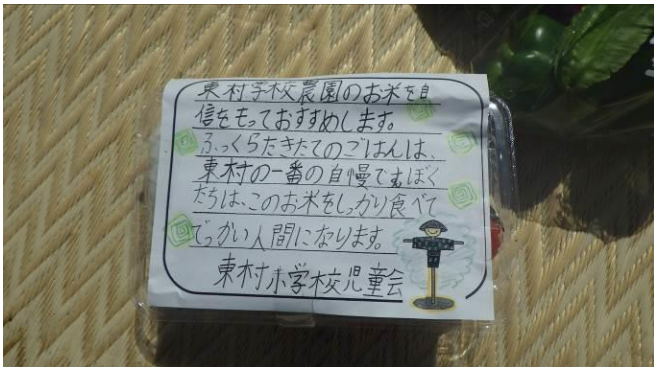 東村学校農園のお米を自
信をもっておすすめします。
ふっくらたきたてのごはんは、
東村の一番の自慢です。ぼく
たちは、このお米をしっかり食べて
でっかい人間になります。
東村小学校児童会